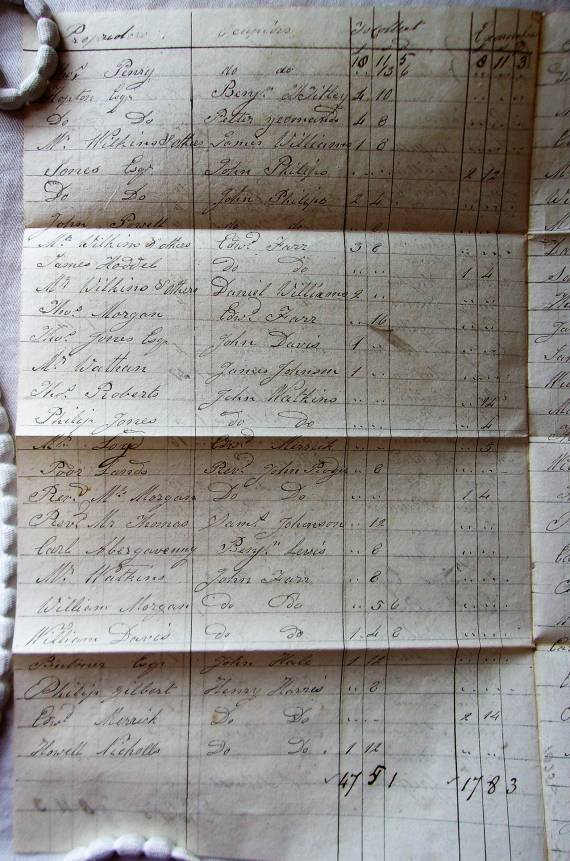 Proprietors Occupiers To Collect Exonerated
18 11 5 8 11 3
Penry do do .. 13 6
Esqr Benjn Whitley 4 10 ..
Do Do Peter yeomans 4 8
Mr Wilkins & others James Williams 1 6
Jones Esqr John Philips .. .. 2 12
Do Do John Philips 2 4
John Powell do do .. 6
Mr Wilkins & others Edwd Farr 3 6
James Hoddel do do .. .. 1 4
Mr Wilkins & others Daniel Williams 2 ..
Thos Morgan Edwd Farr .. 16
Thos Jones Esqr John Davis 1 ..
Mr Wathan James Johnson 1 ..
Thos Roberts John Watkins .. 14
Philip Jones do do .. 4
Edwd Merrick .. 5
Poor Lands Revd John .. 6
Revd Mr Morgan Do Do .. .. 1 4
Revd Mr Thomas Saml Johnson .. 12
Earl Abergavenny Benjn Lewis .. 6
Mr Watkins John Farr .. 8
William Morgan do do .. 5 6
William Davis do do 1 4 6
Esqr John Hall 1 12
Philip Gilbert Henry Harris .. 8
Edwd Merrick Do Do .. .. 2 14
Howell Nicholls Do Do 1 12
47 5 1 17 8 3